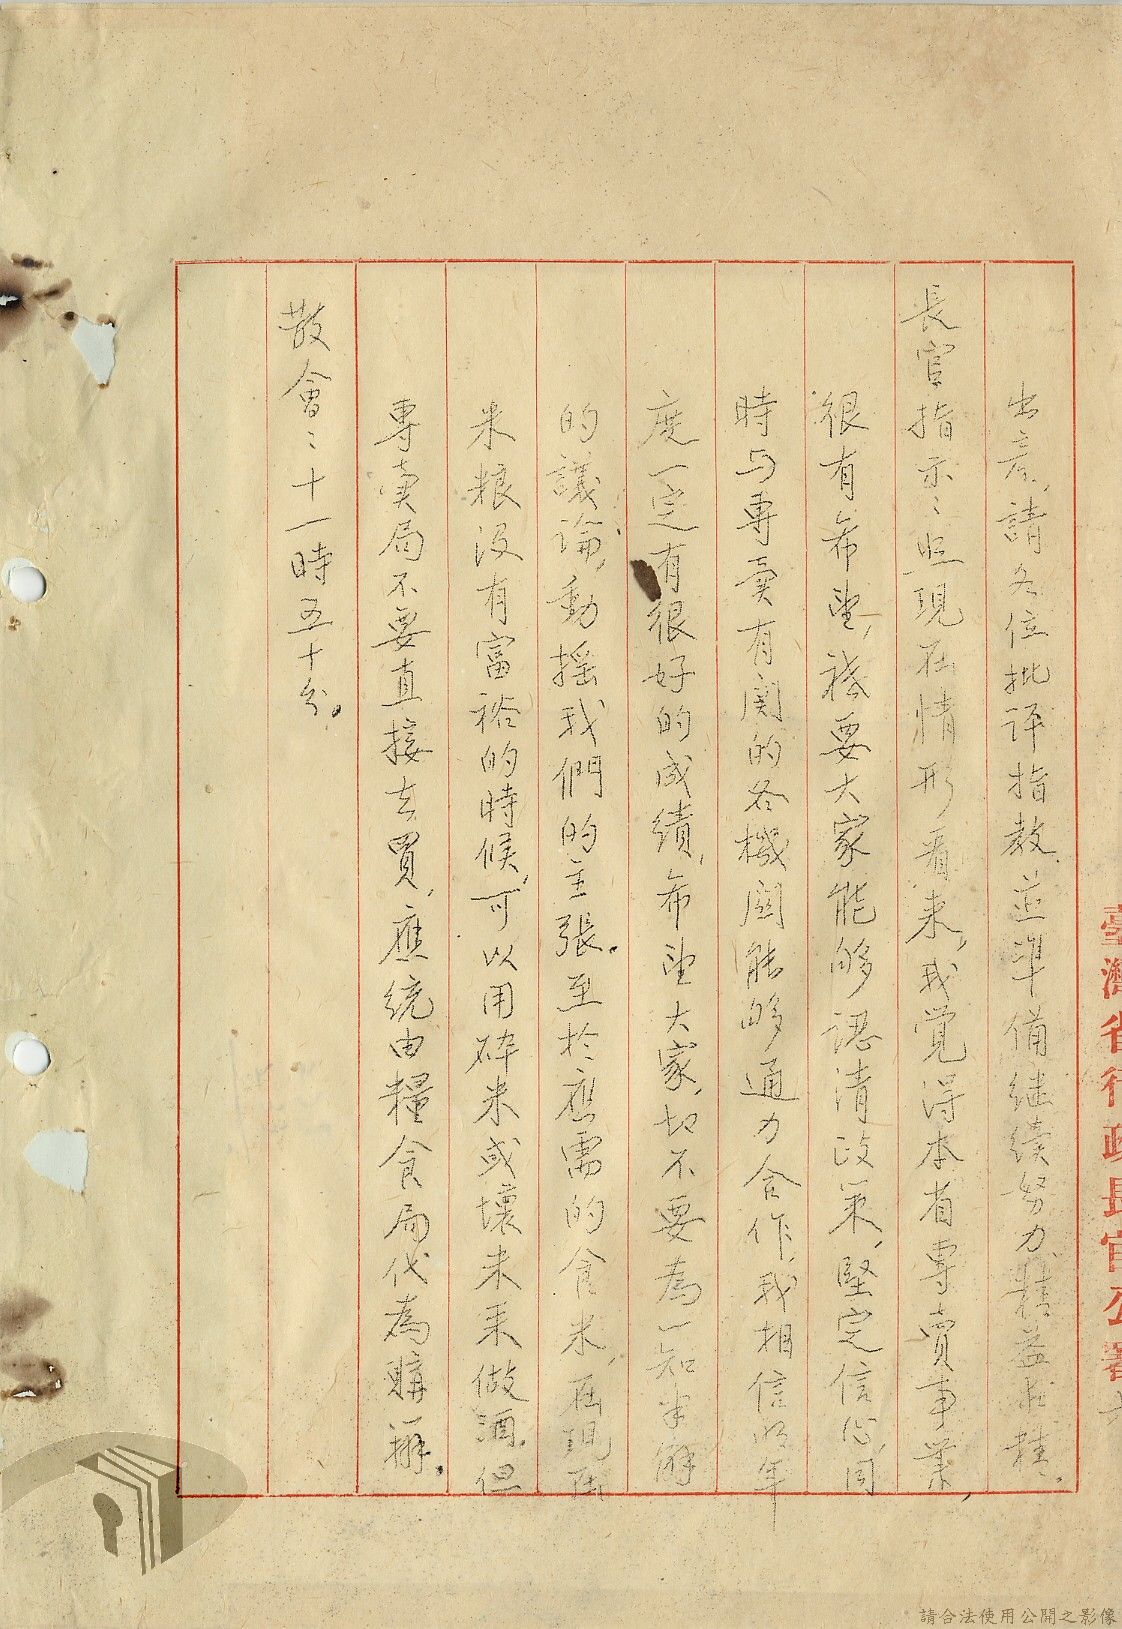 出意,請各位批評指教,並準備継續努力,精益求精。
長官指示:照現在情形看来,我覚得本省專賣事業,
很有希望,祗要大家能够認清政策,堅定信心,同
時与專賣有関的各機関能够通力合作,我相信明年
度一定有很好的成績,布望大家,切不要為一知半解
的議論,動揺我們的主張。至於應需的食米,在現在
米粮没有富裕的時候,可以用碎米或壞米来做酒,但
專賣局不要直接去買,應統由糧食局代為購辦。
散會:十一時五十分。
臺灣省行政長官公署
請合法使用公開之影像